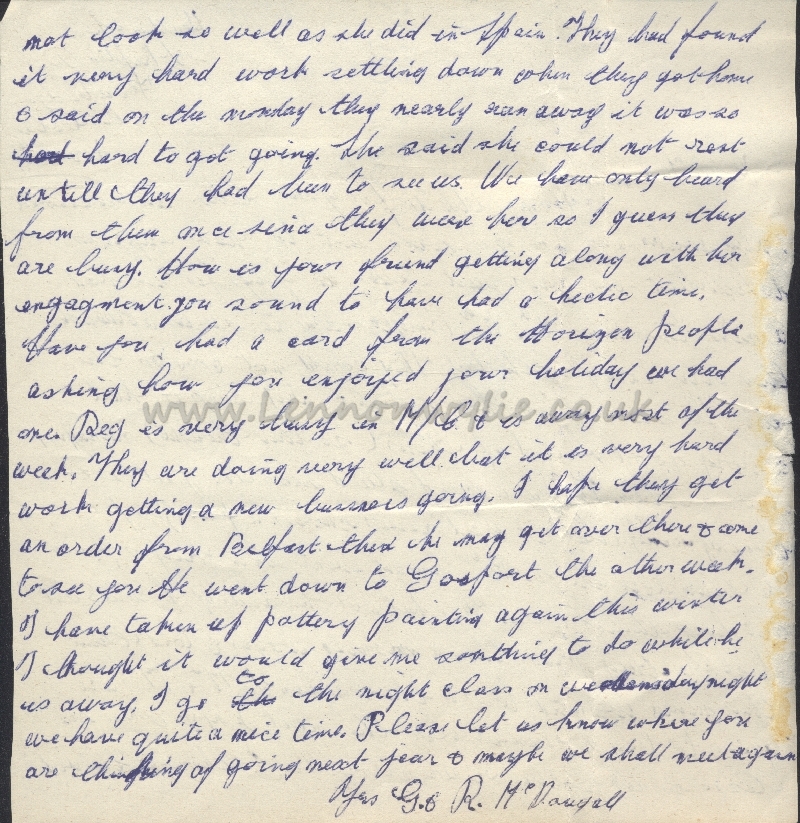 not look so well as she did in Spain. They had found
it very hard work settling down when they got home
& said on the monday they nearly ran away it was so
hard hard to get going. She said she could not rest
untill they had been to see us. We have only heard
from them once since they were here so I guess they
are busy. How is your friend getting along with her
engagment, you sound to have had a hectic time.
Have you had a card from the Horizon people
asking how you enjoyed your holiday we had
one. Reg is very busy in M/C & is away most of the
week. They are doing very well but it is very hard
work getting a new bussiness going. I hope they get
an order from Belfast then he may get over there & come
to see you He went down to Gosport the other week.
I have taken up pottery painting again this winter
I thought it would give me somthing to do while he
is away. I go to the the night class on wedensday night
we have quite a nice time. Please let us know where you
are thinking of going next year & maybe we shall meet again
Yrs G. & R. McDougall
www.Lennonwylie.co.uk